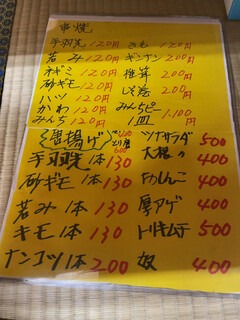 串焼
手羽先 120円
若み 120円
ネギミ 120円
砂ギモ 120円
ハツ 120円
かわ 120円
みんち 120円
きも 120円
ギンナン 200円
椎茸 200円
しし唐 200円
みんちピー
1皿 1,100円
唐揚げ
手羽先 1本 130
砂ギモ 1本 130
若み 1本 130
キモ 1本 130
ナンコツ 1本 200
ツナサラダ 500
大根〃 400
おしんこ 400
厚アゲ 400
トリキムチ 500
奴 400